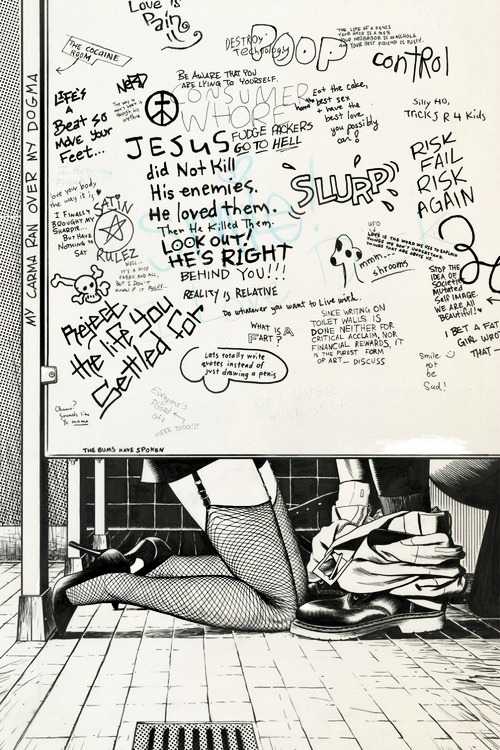 Love is
Pain
THE COCAINE
ROOM
NERD
DESTROY
Technology
POOP
THE LIFE OF A PENIS
YOUR HAIR IS A MESS
YOUR NEIGHBOR IS AN ASSHOLE
YOUR BEST FRIEND IS PUSSY.
CONTROL
BE AWARE THAT YOU
ARE LYING TO YOURSELF.
CONSUMER
WHORE
LIFE'S
A
Beat so
Move your
Feet...
Eat the cake,
have the best sex
+ have the
best love
you possibly
can!
Silly HO,
TRICKS R 4 Kids
FUDGE PACKERS
GO TO HELL
JESUS
did Not Kill
His enemies.
He loved them.
Then He Killed Them.
LOOK OUT!
HE'S RIGHT
BEHIND YOU!!!
REALITY IS RELATIVE
SLURP
RISK
FAIL
RISK
AGAIN
MY CARMA RAN OVER MY DOGMA
love your body
the way it is
I FINALLY
BROUGHT MY
SHARPIE...
BUT HAVE
NOTHING to
SAY
SATIN
RULEZ
WELL...
IT'S A NICE
FABRIC AND ALL
BUT I DON'T
KNOW IF IT RULEZ...
UFO
LOVE IS THE WORD WE USE TO EXPLAIN
mmh...
shrooms
STOP THE
IDEA OF
SOCIETIES
MUTATED
Self IMAGE.
WE ARE ALL
BEAUTIFUL!
Reject
the life you
Settled for
Do whatever you want to Live with.
WHAT IS A
FART?
SINCE WRITING ON
TOILET WALLS IS
DONE NEITHER FOR
CRITICAL ACCLAIM, NOR
FINANCIAL REWARDS, IT
IS THE PUREST FORM
OF ART... DISCUSS
I BET A FAT
GIRL WROTE
THAT
Lets totally write
quotes instead of
just drawing a penis
Smile
not
be
Sad!
Obama?
Sounds like
Yo momma
Everyone's
Pissed
off
HERE TOOO!!!
THE BUMS HAVE SPOKEN